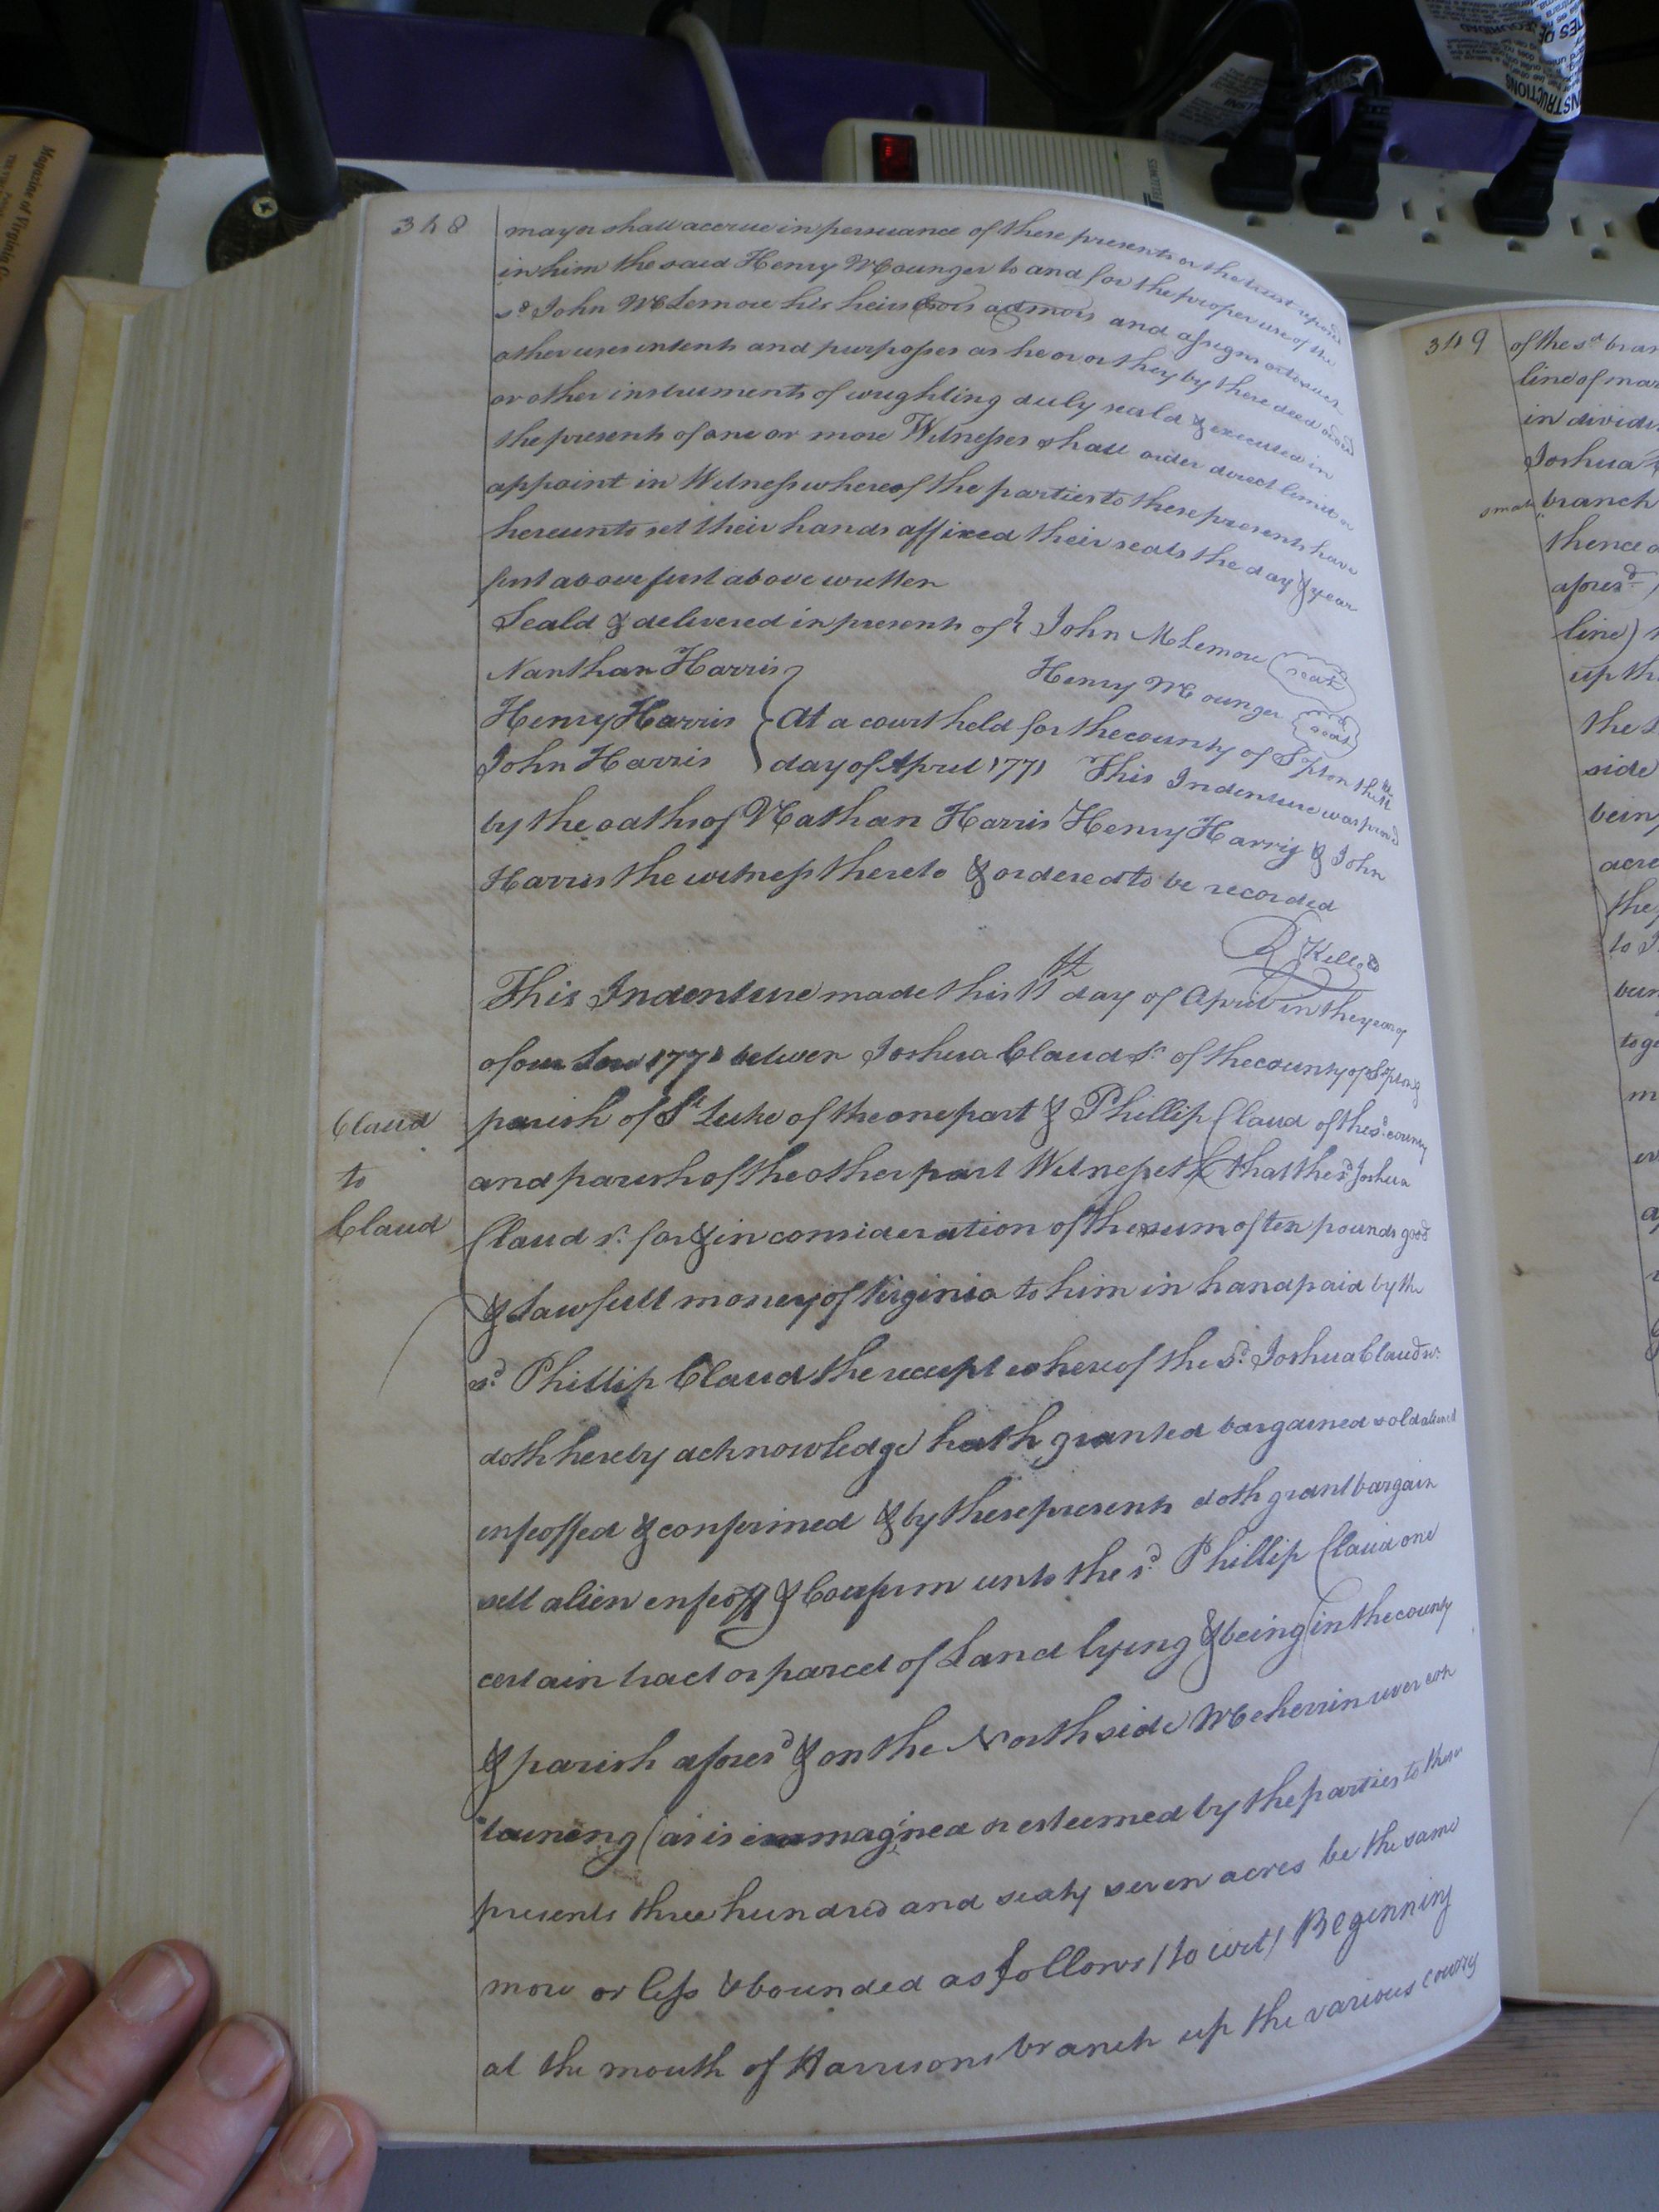 348
may or shall accrue in persuance of these presents or the trust
in him the said Henry McOunger to and for the proper use of the
sd. John McLemore his heirs Exors admors and assigns or to such
other uses intents and purposes as he or or they by there deed or
or other instruments of wrighting duly seald & executed in
the presents of one or more Witnesses shall order direct limit or
appoint in Witness whereof the parties to these presents have
hereunto set their hands affixed their seals the day & year
first above first above written
Seald & delivered in presents of John McLemore (seal)
Nanthan Harris Henry McOunger (seal)
Henry Harris At a court held for the county of Sopton the
John Harris day of April 1771 This Indenture was proved
by the oaths of Nathan Harris Henry Harris & John
Harris the witness thereto & ordered to be recorded
This Indenture made this 11th day of April in the year of
of our Lord 1771 between Joshua Claud Sr of the county of
parish of St Luke of the one part & Phillip Claud of the sd. county
Claud
to
Claud
and parish of the other part Witnesseth that the sd Joshua
Claud sr. for & in consideration of the sum of ten pounds good
& Lawfull money of Virginia to him in hand paid by the
sd. Phillip Claud the receipt whereof the sd. Joshua Claud sr.
doth hereby acknowledge hath granted bargained sold
enfeoffed & confirmed & by these presents doth grant bargain
sell alien enfeoff & Confirm unto the sd. Phillip Claud one
certain tract or parcel of Land lying & being in the county
& parish aforesd & on the North side Meherrin river con
taining (as is immagined or esteemed by the parties to these
presents three hundred and sixty seven acres be the same
more or less & bounded as follows (to wit) Beginning
at the mouth of Harrisons branch up the various
349
of the sd bran
line of mar
in
Joshua
small branch
thence
aforesd
line)
up th
the
side
bein
acre
the
to
Magazine of Virginia
FELLOWES
INSTRUCTIONS